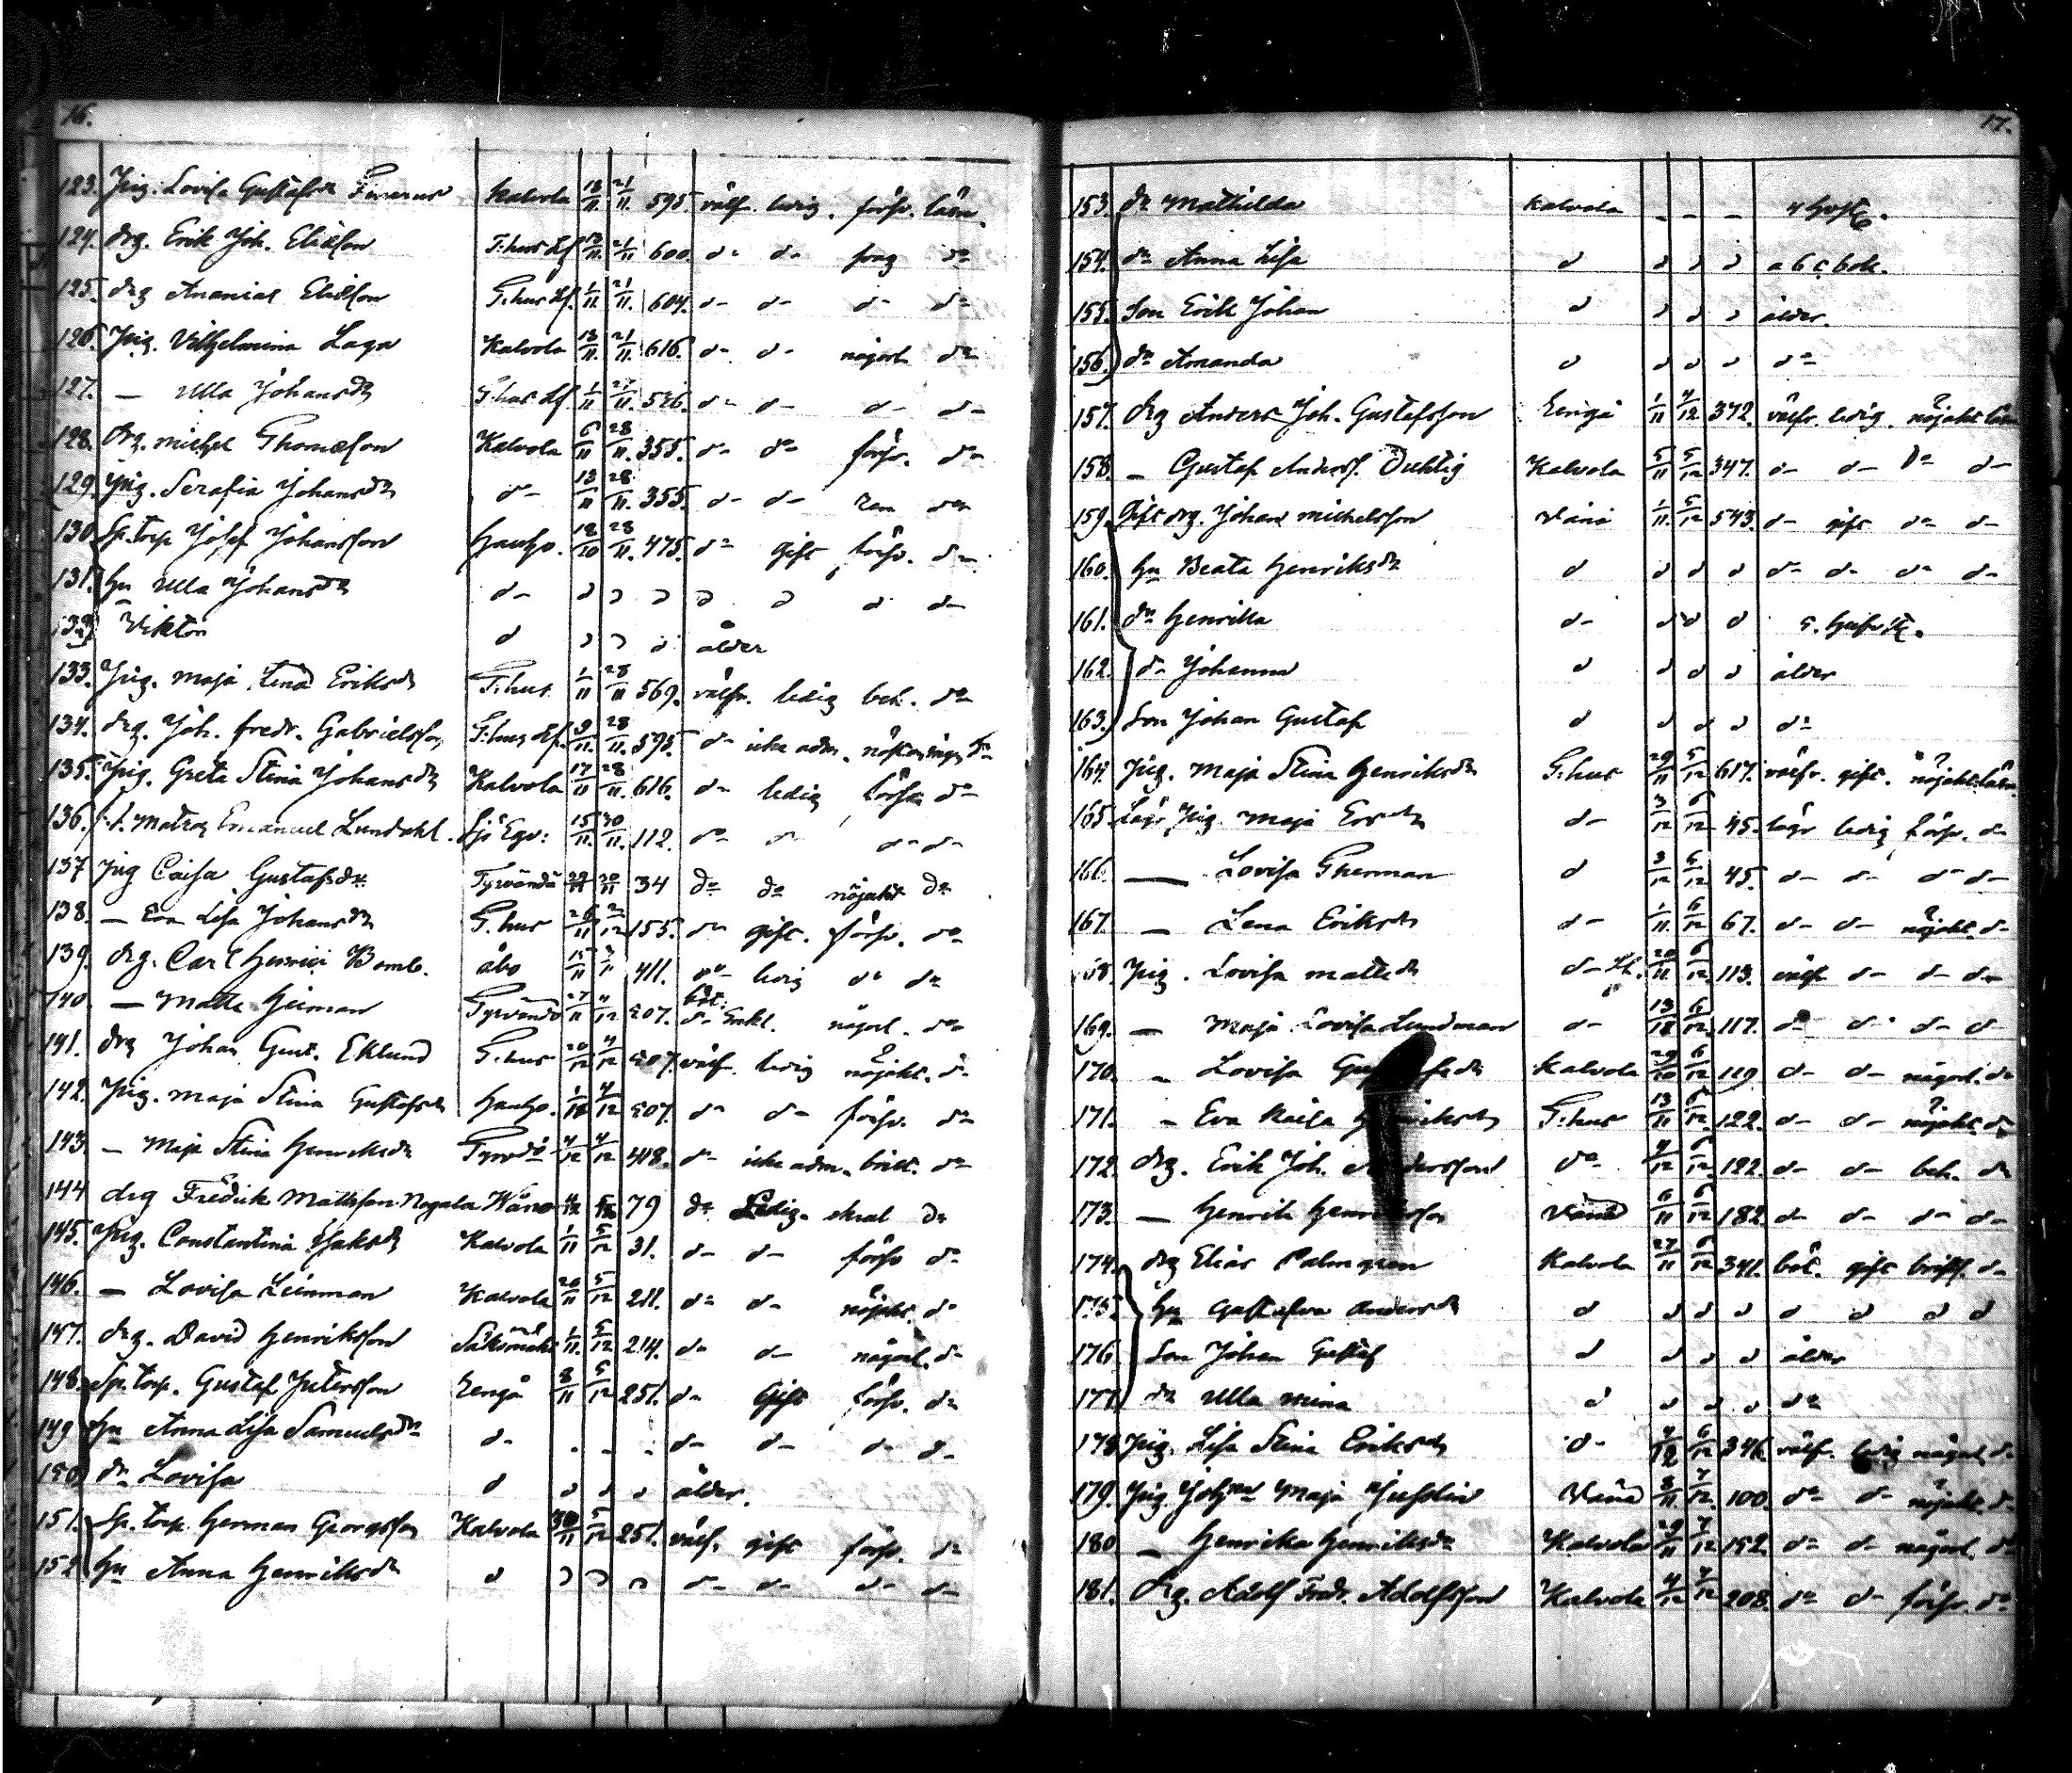 16.
123. Pig. Lovisa Gustafsdr Kalvola 13/11 21/11 595. välfr. ledig. försv. läsn.
124. drg. Erik Joh. Eliæson T:hus 13/11 21/11 600. do do svag do
125. drg Ananias Eliæson T:hus 1/11 21/11 604. do do do do
126. Pig. Vilhelmina Laga Kalvola 13/11 21/11 616. do do någorl. do
127. — Ulla Johansdr T:hus 1/11 27/11 526. do do do do
128. Drg. Michel Thomæson Kalvola 6/11 28/11 355. do do försv. do
129. Pig. Serafia Johansdr do 13/11 28/11 355. do do ren do
130. Sp.torp Josef Johansson Hauho. 18/10 28/11 475. do gift försv. do
131. hu Ulla Johansdr do d d d d d d do
132. Viktor d d d d ålder
133. Pig. Maja Lena Eriksdr T:hus 1/11 28/11 569. välfr. ledig beh. do
134. drg. Joh. Fredr. Gabrielsson T:hus 9/11 28/11 595. do icke adm. do
135. Pig. Greta Stina Johansdr Kalvola 17/11 28/11 616. do ledig försv. do
136. Matros Emanuel Lundahl. 15/11 30/11 112. do do do do
137 Pig Caisa Gustafsdr. Tyrvändö 29/11 30/11 34 do do nöjakt do
138. — Eva Lisa Johansdr T:hus 26/11 2/12 155. do gift. försv. do
139. drg. Carl Henric Bomb. åbo 15/11 411. do ledig do do
140. — Matte Heiman Tyrvändö 27/11 4/12 207. do Enkl. någorl. do
141. drg Johan Gust. Eklund T:hus 20/12 4/12 207. välfr. ledig nöjakt. do
142. Pig. Maja Stina Gustafsdr Hauho. 1/12 4/12 207. do do försv. do
143. — Maja Stina Henriksdr Tyrvdö 4/12 4/12 418. do icke adm. brist. do
144 drg Fredrik Mattsson Nogala Wånå 4/12 5/12 79 do Ledig. skral do
145. Pig. Constantina Isaksdr Kalvola 1/11 5/12 31. do do försv do
146. — Lovisa Leinman Kalvola 20/11 5/12 211. do do nöjakt. do
147. drg. David Henriksson Sääksmäki 1/11 5/12 214. do do någorl. do
148. Sp. torp. Gustaf Petersson Rengå 8/11 5/12 251. do Gift försv. do
149 hu Anna Lisa Samuelsdr do - - - do do do do
150 dr Lovisa d d d d ålder.
151. Sp. torp. Herman Georgsson Kalvola 30/11 5/12 251. välfr. gift försv. do
152 hu Anna Henriksdr d d d d do do do do
17.
153. dr Mathilda Kalvola - - -
154. dr Anna Lisa d d d d a b c bok.
155. Son Erik Johan d d d d ålder.
156. dr Amanda d d d d do
157. drg Anders Joh. Gustafsson Rengå 1/11 4/12 372. välfr. ledig. nöjakt läsn
158. — Gustaf Anderss. Duktig Kalvola 5/11 5/12 347. do do do do
159. Gift drg. Johan Michelsson Vånå 1/11 5/12 543. do gift do do
160. hu Beata Henriksdr d d d d do do do do
161. dr Henrika do d d d
162. dr Johanna d d d d ålder
163. Son Johan Gustaf d d d d do
164. Pig. Maja Stina Henriksdr T:hus 29/11 5/12 617. välfr. gift. nöjakt. läsn
165. Lägr Pig. Maja Ersdr do 3/12 6/12 45. lägr ledig försv. do
166. — Lovisa Therman d 3/12 6/12 45. do do do do
167. — Lena Eriksdr do 1/11 6/12 67. do do nöjakt. do
168 Pig. Lovisa Mattsdr do 20/11 6/12 113. välfr do do do
169. — Maja Lovisa Lundman do 13/12 6/12 117. do do do do
170. — Lovisa Kalvola 29/10 6/12 119 do do någorl. do
171. — Eva Kaisa T:hus 13/11 6/12 122. do do nöjakt. do
172. drg. Erik Joh. Andersson do 4/12 6/12 122. do do beh. do
173. — Henrik Vånå 6/11 6/12 182 do do do do
174. drg Elias Palmgren Kalvola 27/11 6/12 341. böt. gift bristf. do
175. hu Gustafva Andersdr d d d d d d d d
176 Son Johan Gustaf d d d d ålder
177. dr Ulla Mina d d d d do
178 Pig. Lisa Stina Eriksdr do 4/12 6/12 346. välfr. ledig någorl. do
179. Pig. Johna Maja Juslin Vånå 8/11 7/12 100. do do nöjakt. do
180 — Henrika Henriksdr Kalvola 29/11 7/12 152. do do någorl. do
181. Drg. Adolf Fredr. Adolfsson Kalvola 4/12 7/12 208. do do försv. do